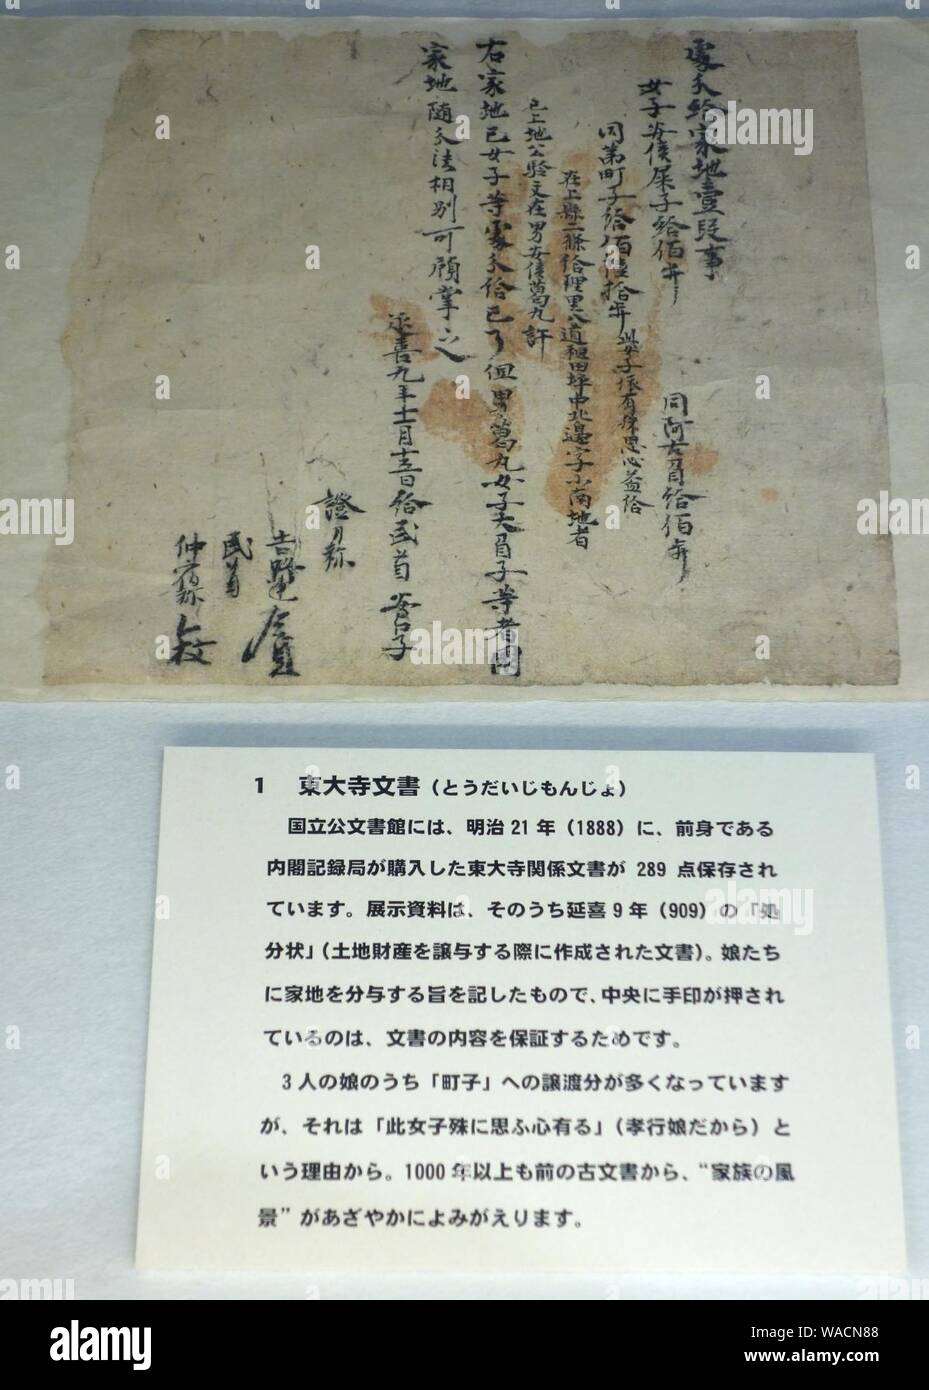 處分給家地壹段事
女子安倍犀子給佰歩 同阿古刀自給佰歩
同第町子給佰陸拾歩 此女子依有殊思心益給
在上縣二條給理里八道租田坪中北邊字小南地者
已上地公驗文在男安倍葛丸許
右家地已女子等處分給已了但男葛丸女子大刀自子等者
家地随分法相別可領掌之
延喜九年十一月十五日
證刀祢
1 東大寺文書（とうだいじもんじょ）
国立公文書館には、明治 21 年（1888）に、前身である
内閣記録局が購入した東大寺関係文書が 289 点保存され
ています。展示資料は、そのうち延喜 9 年（909）の「処
分状」（土地財産を譲与する際に作成された文書）。娘たち
に家地を分与する旨を記したもので、中央に手印が押され
ているのは、文書の内容を保証するためです。
3 人の娘のうち「町子」への譲渡分が多くなっています
が、それは「此女子殊に思ふ心有る」（孝行娘だから）と
いう理由から。1000 年以上も前の古文書から、“家族の風
景”があざやかによみがえります。
alamy
Image ID: WACN88
www.alamy.com